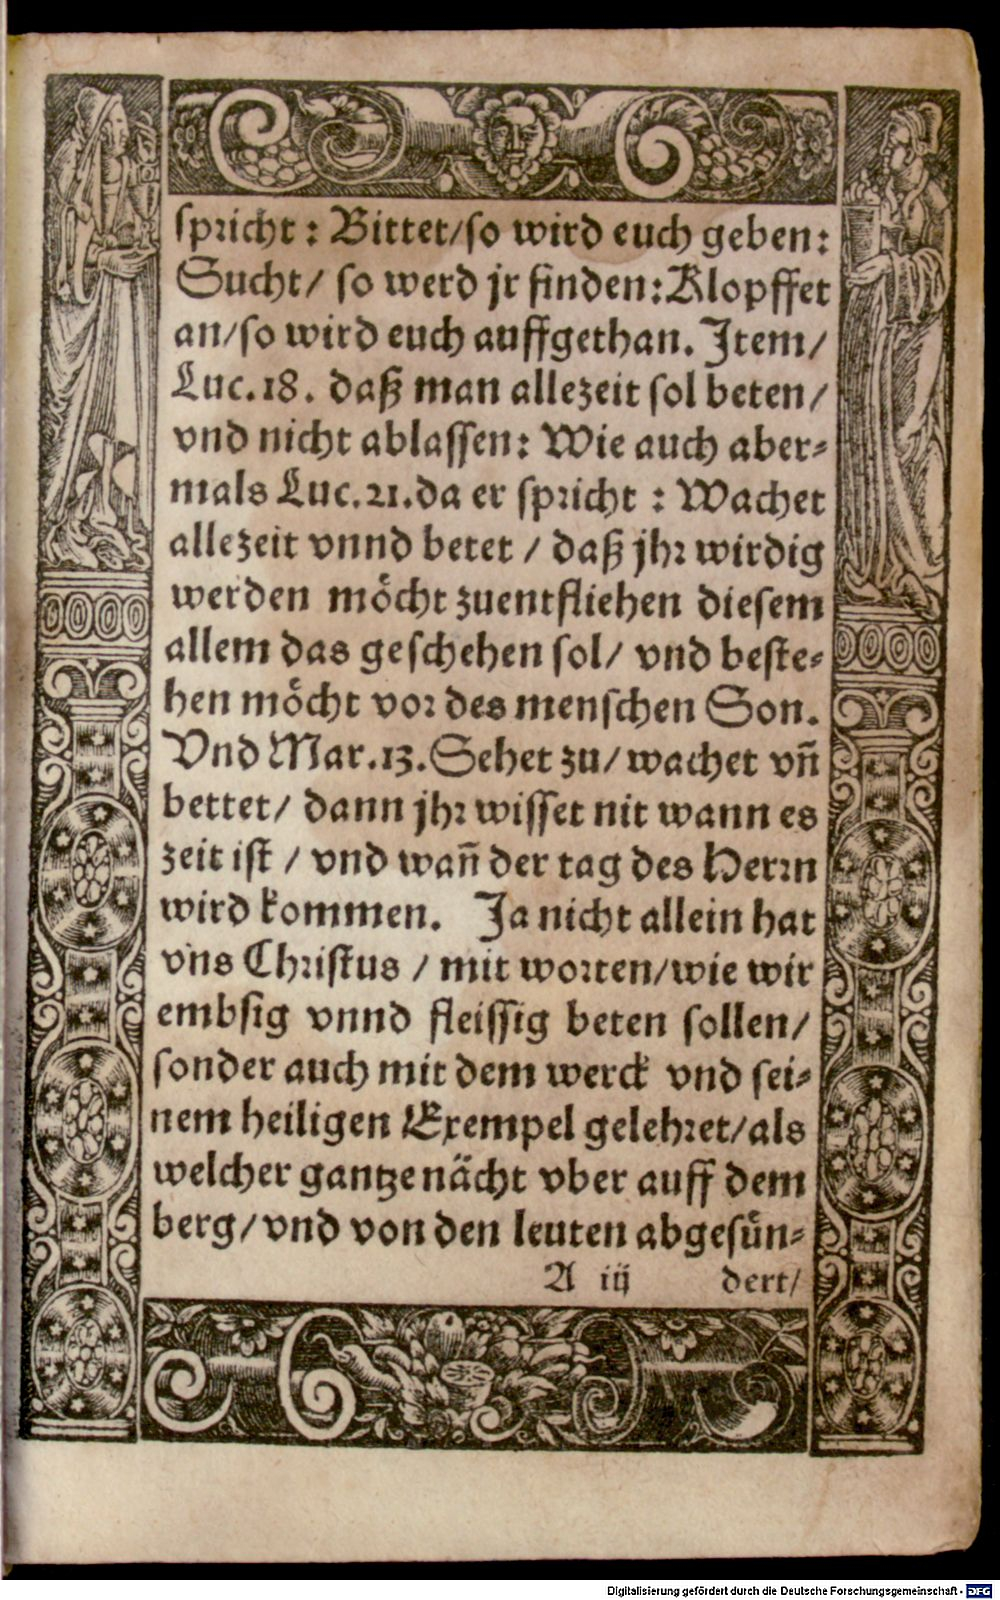 spricht : Bittet/so wird euch geben:
Sucht/ so werd jr finden:Klopffet
an/so wird euch auffgethan. Item/
Luc.18. daß man allezeit sol beten/
vnd nicht ablassen: Wie auch aber-
mals Luc.21.da er spricht : Wachet
allezeit vnnd betet / daß jhr wirdig
werden möcht zuentfliehen diesem
allem das geschehen sol/ vnd beste-
hen möcht vor des menschen Son.
Vnd Mar.13.Sehet zu/ wachet vñ
bettet/ dann jhr wisset nit wann es
zeit ist / vnd wañ der tag des Herrn
wird kommen. Ja nicht allein hat
vns Christus / mit worten/wie wir
embsig vnnd fleissig beten sollen/
sonder auch mit dem werck vnd sei-
nem heiligen Exempel gelehret/als
welcher gantze nächt vber auff dem
berg/vnd von den leuten abgesün-
A iij dert/
Digitalisierung gefördert durch die Deutsche Forschungsgemeinschaft - DFG